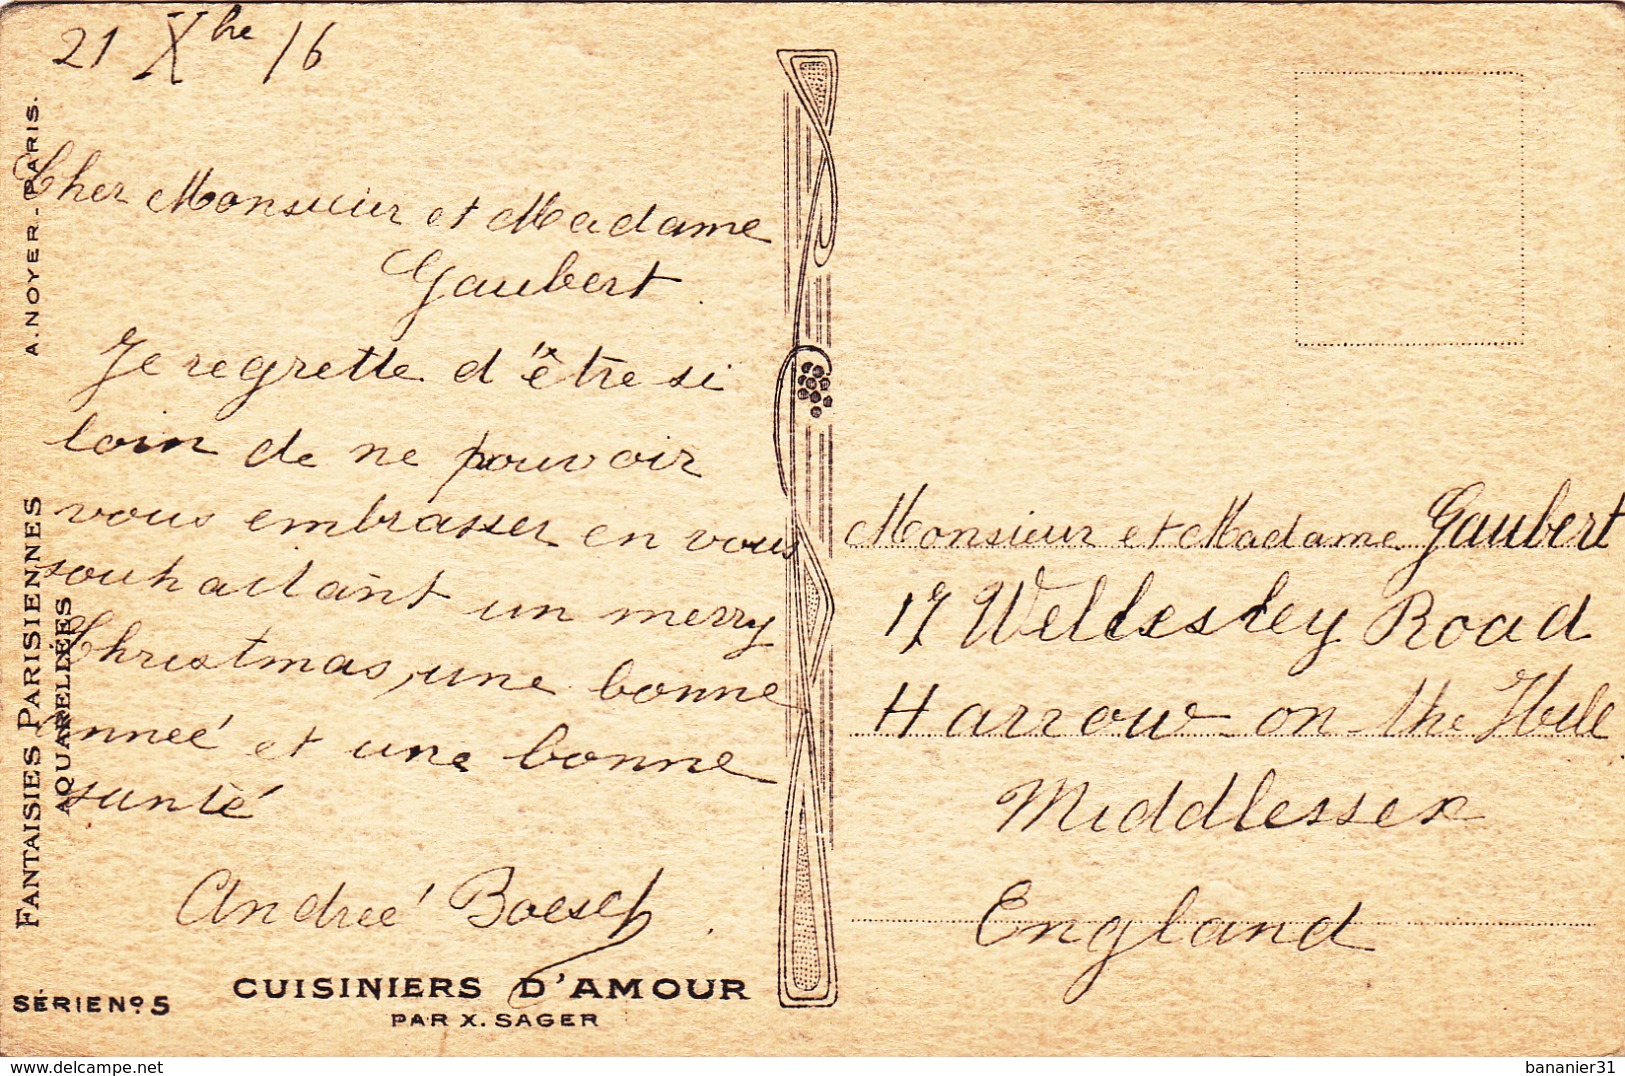 21 Xbre 16
Cher Monsieur et Madame
Gaubert.
Je regrette d'être si
loin de ne pouvoir
vous embrasser en vous
souhaitant un merry
Christmas, une bonne
anneé et une bonne
santé
Andreé Boesch.
Monsieur et Madame Gaubert
17 Wellesley Road
Harrow-on-the Hill
Middlessex
England
A. NOYER - PARIS.
FANTAISIES PARISIENNES
AQUARELLÉES
SÉRIE Nº 5
CUISINIERS D'AMOUR
PAR X. SAGER
delcampe.net
bananier31